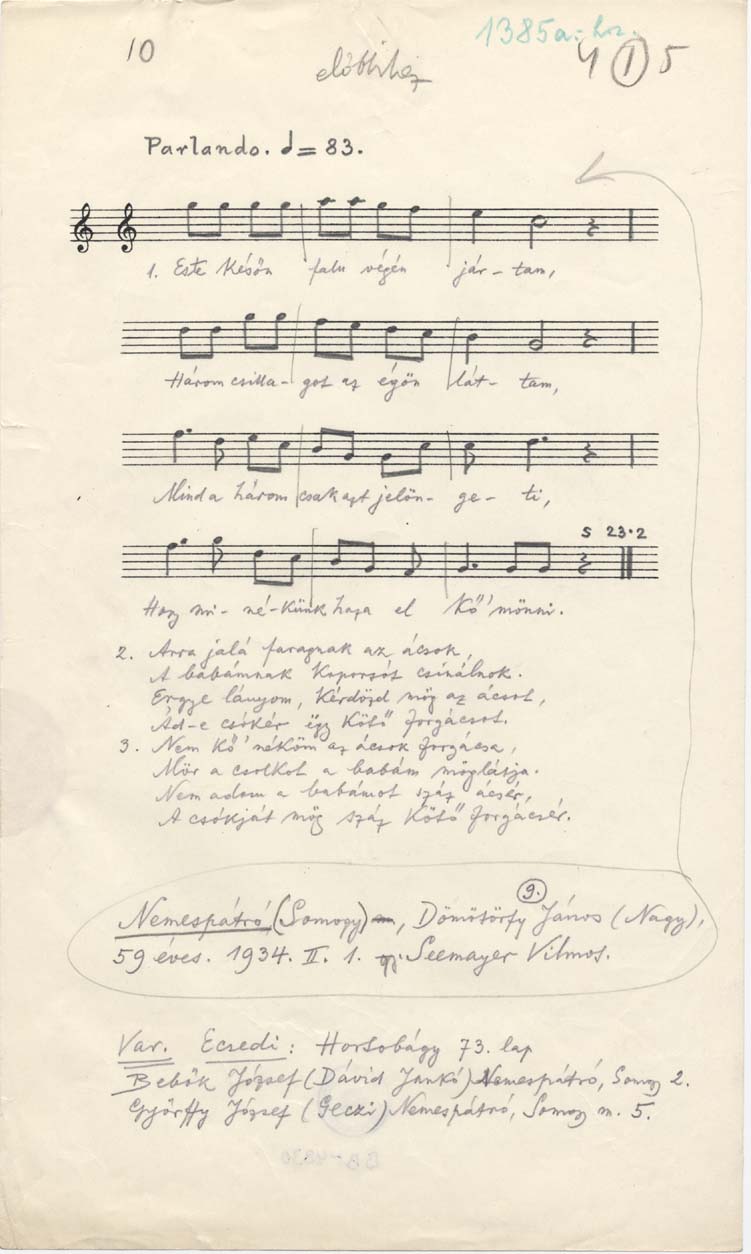 10
1385a-hoz.
előbbihez
4 1 5
Parlando. = 83.
1. Este késön falu végén jár- tam,
Három csilla- got az égön lát- tam,
Mind a három csak azt jelön- ge- ti,
5 23.2
Hogy mi- né- künk haza el kő' mönni.
2. Arra jalá faragnak az ácsok,
A babámnak koporsót csinálnok.
Ergye lányom, kérdözd mög az ácsot,
Ád-e csókér ëgy kötő forgácsot.
3. Nem kő' néköm az ácsok forgácsa,
Mör a csolkot a babám möglátja.
Nem adom a babámot száz ácsér,
A csókját mög száz kötő forgácsér.
9.
Nemespátró (Somogy), Dömötörfy János (Nagy),
59 éves. 1934. II. 1. gy. Seemayer Vilmos.
Var. Ecsedi: Hortobágy 73. lap
Bebők József (Dávid Jankó) Nemespátró, Somogy 2.
Györffy József (Geczi) Nemespátró, Somogy m. 5.